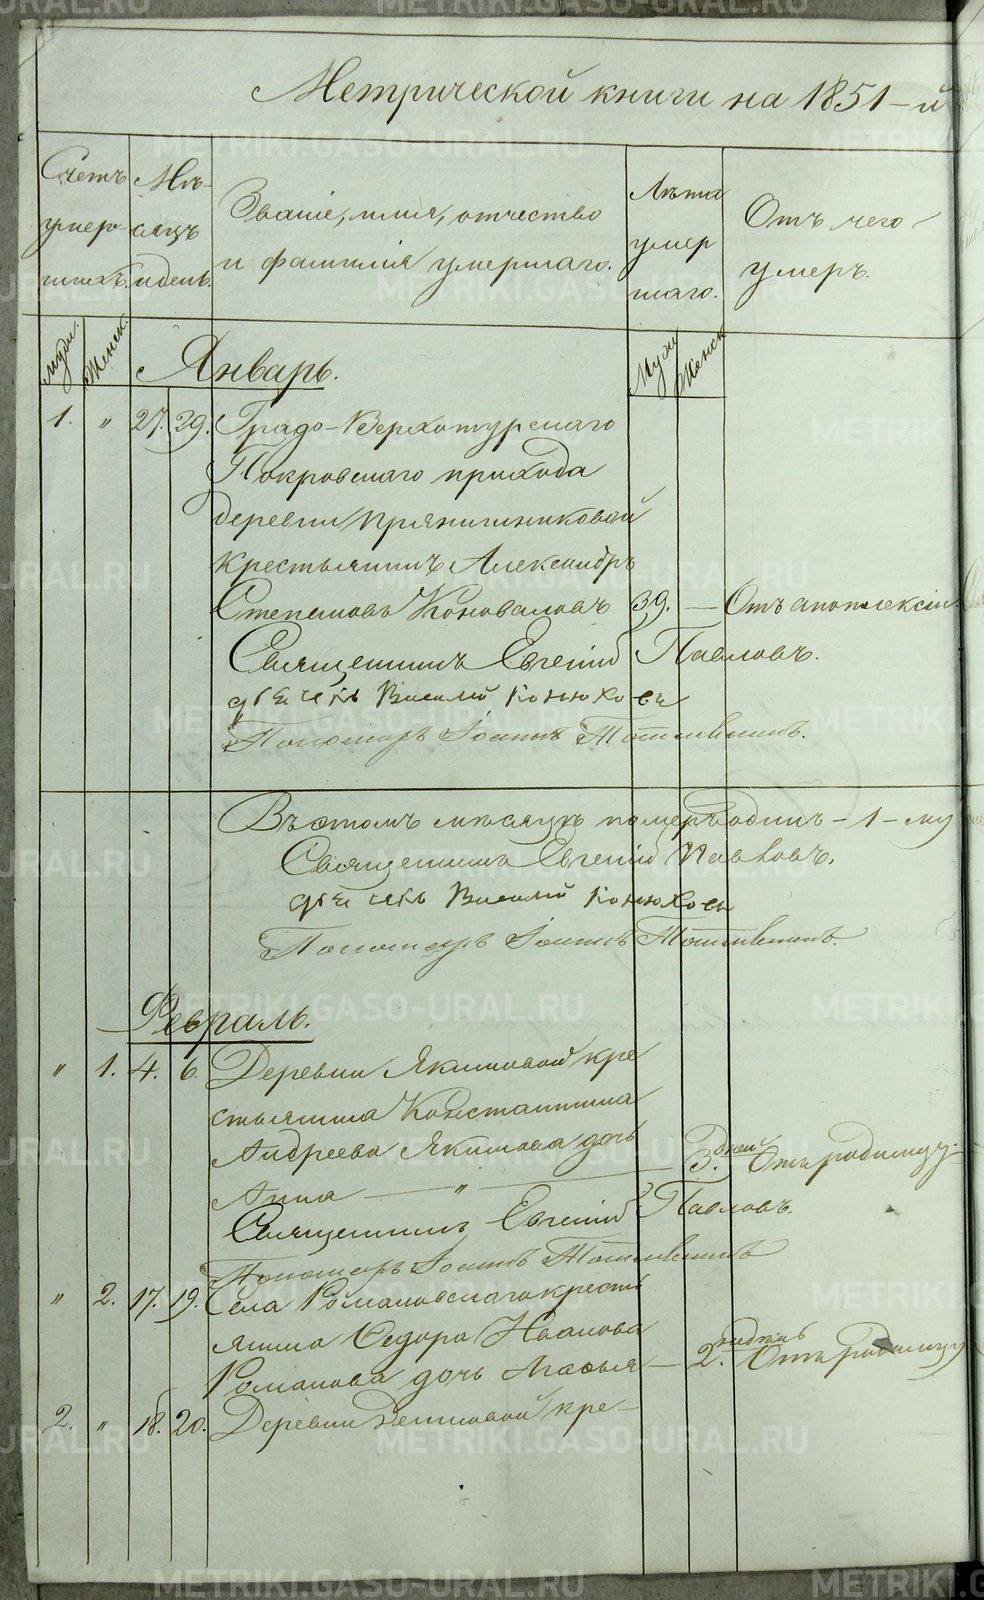 Метрической книги на 1851-й
Счетъ умер- шихъ.
Мѣ- сяцъ и день.
Званіе, имя, отчество
и фамилія умершаго.
Лѣта умер шаго.
Отъ чего
умеръ.
Муж. Женск.
Январь.
Муж Женск
1. " 27. 29. Градо-Верхотурскаго
Покровскаго прихода
деревни Прянишниковой
крестьянинъ Александръ
Степановъ Коноваловъ 39. — Отъ апоплексіи.
Священникъ Евгеній Павловъ.
дьячекъ Василій Конюховъ
Пономарь Іоаннъ
Въ этомъ мѣсяцѣ померъ одинъ - 1 - му
Священникъ Евгеній Павловъ.
дьячекъ Василій Конюховъ
Пономарь Іоаннъ
Февраль.
" 1. 4. 6. Деревни Якимовой кре
стьянина Константина
Андреева Якимова дочь
Анна — " — 3. дней Отъ родимцу.
Священникъ Евгеній Павловъ.
Пономарь Іоаннъ
" 2. 17. 19. Села Романовскаго кресть
янина Ѳедора Иванова
Романова дочь — 2. недѣль Отъ родимцу
2. " 18. 20. Деревни кре-
METRIKI.GASO-URAL.RU